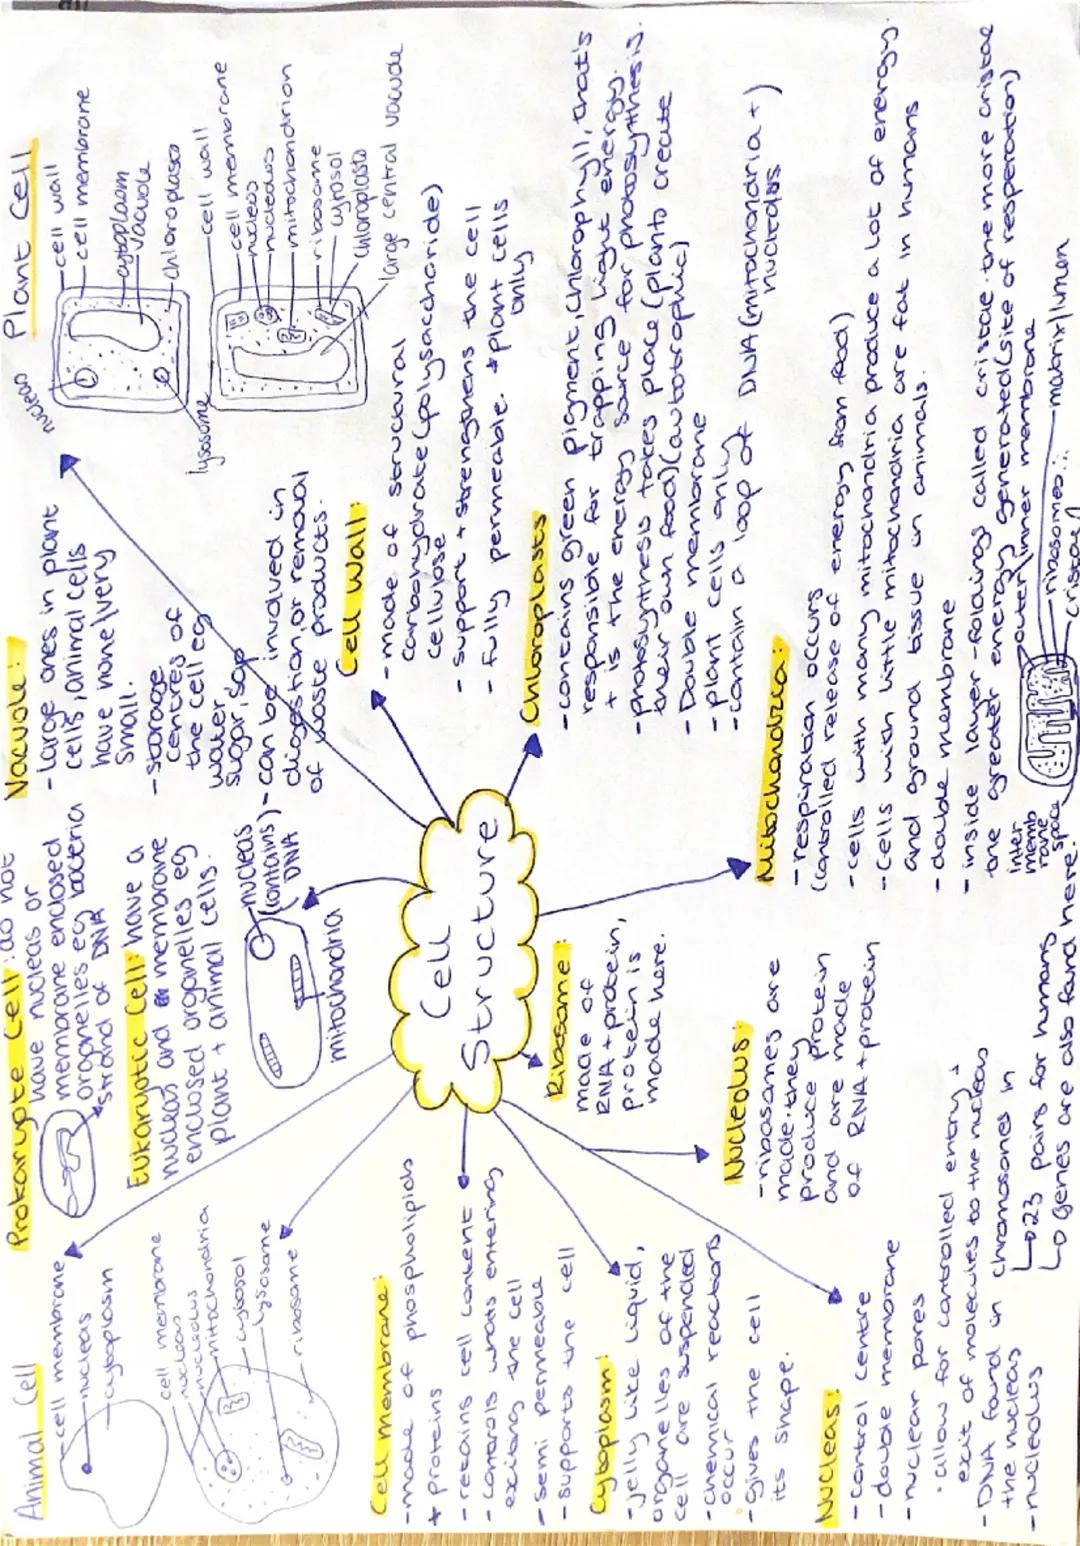 Animal Cell
cell membrane
nucleas
cytoplasm
cell membrane
nucleas
nucleolus
mitochondria
cytosol
lysosome
ribosome
Prokaryote Cell: do not
have nucleas or
membrane enclosed
organelles eg bacteria
strand of DNA
Eukaryotic Cell: have a
nucleas and membrane
enclosed organelles eg
plant + animal cells.
nucleas
(contains)
DNA
mitochondria
Vacuole:
- Large ones in plant
cells, animal cells
have none/very
small.
- storage
centres of
the cell eg
water
sugar, sap
- can be involved in
digestion, or removal
of waste products.
Plant Cell
nucleas
cell wall
cell membrane
cytoplasm
vacuole
chloroplasts
lysosome
cell wall
cell membrane
nucleas
nucleolus
mitochondrion
ribosome
cytosol
chloroplasts
large central vacuole
Cell Structure
Cell Membrane:
- made of phospholipids
+ proteins
- retains cell content
- controls whats entering
exiting the cell
- semi permeable
- supports the cell
Cytoplasm:
- jelly like liquid,
organelles of the
cell are suspended
- chemical reactions
occur
- gives the cell
its shape.
Nucleas:
- control centre
- double membrane
- nuclear pores
· allow for controlled entry +
exit of molecules to the nucleas
- DNA found in chromosones in
the nucleas
23 pairs for humans
genes are also found here.
- nucleolus
Ribosome:
made of
RNA + protein,
protein is
made here.
Nucleolus:
- ribosomes are
made. they
produce protein
and are made
of RNA + protein
Cell Wall:
- made of structural
carbohydrate (polysaccharide)
cellulose
- support + strenghtens the cell
- fully permeable. * plant cells
only
Chloroplasts
- contains green pigment, chlorophyll, that's
responsible for trapping light energy.
+ is the energy source for photosynthesis.
- photosynthesis takes place (plants create
their own food) (autotrophic)
- Double membrane
- plant cells only
- contain a loop of DNA (mitochondria +)
nucleas
Mitochondria:
- respiration occurs
(controlled release of energy from food)
- cells with many mitochondria produce a lot of energy.
- cells with little mitochondria are fat in humans
and ground tissue in animals.
- double membrane
- inside layer - foldings called cristae. the more cristae
the greater energy generated (site of resperation)
outer/inner membrane
inter
memb
rane
space
ribosomes
matrix/lumen
cristae